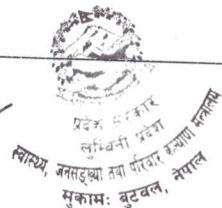 प्रदेश सरकार
लुम्बिनी प्रदेश
स्वास्थ्य, जनसङ्ख्या तथा परिवार कल्याण मन्त्रालय
मुकाम: बुटवल, नेपाल